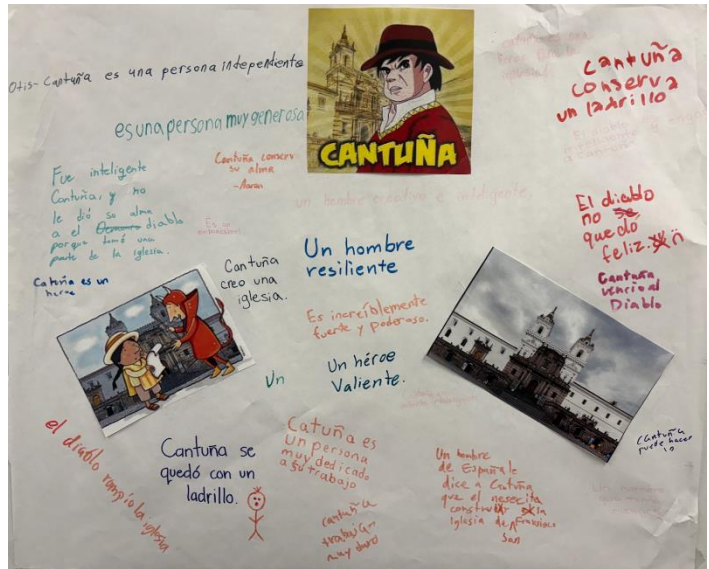 Otis- Cantuña es una persona independiente
es una persona muy generosa
CANTUÑA
Cantuña
conserva
un ladrillo
Fue inteligente
Cantuña, y no
le dió su alma
a el diablo
porque tomó una
parte de la iglesia.
Cantuña conserv
su alma
-Aaron
un hombre creativo e inteligente.
El diablo
no se
quedo
feliz.
Cantuña
vencio al
Diablo
Es un
Catuña es un
heroe
Cantuña
creo una
iglesia.
Un hombre
resiliente
Es increíblemente
fuerte y poderoso.
Un
Un héroe
Valiente.
el diablo rompio la iglesia
Cantuña se
quedó con un
ladrillo.
Catuña es
un persona
muy dedicado
a su trabajo
cantuña
trabaja
muy duro
Un hombre
de España le
dice a Catuña
que el nesecita
construir la
iglesia de Francisco
San
Cantuña
puede hacer
lo